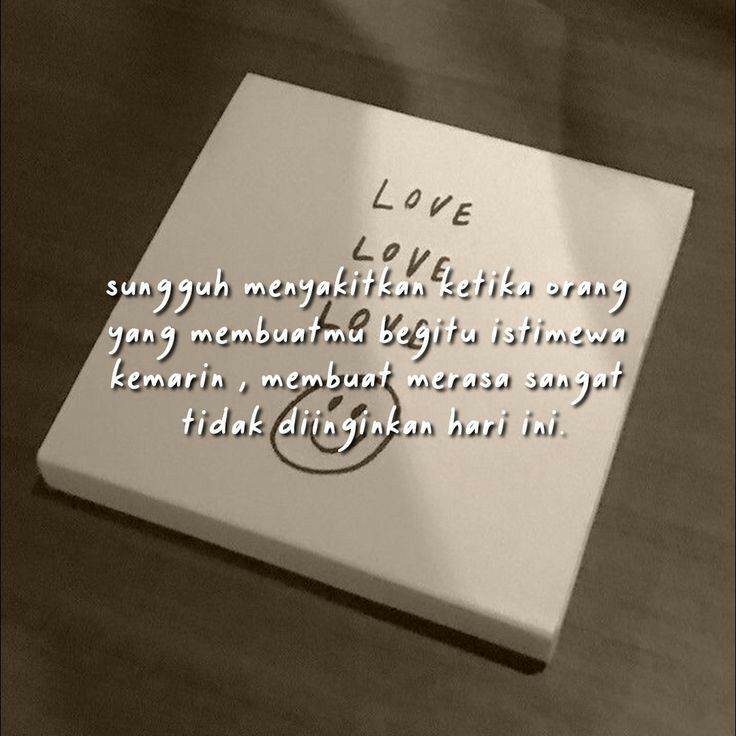 LOVE
LOVE
LOVE
sungguh menyakitkan ketika orang
yang membuatmu begitu istimewa
kemarin , membuat merasa sangat
tidak diinginkan hari ini.